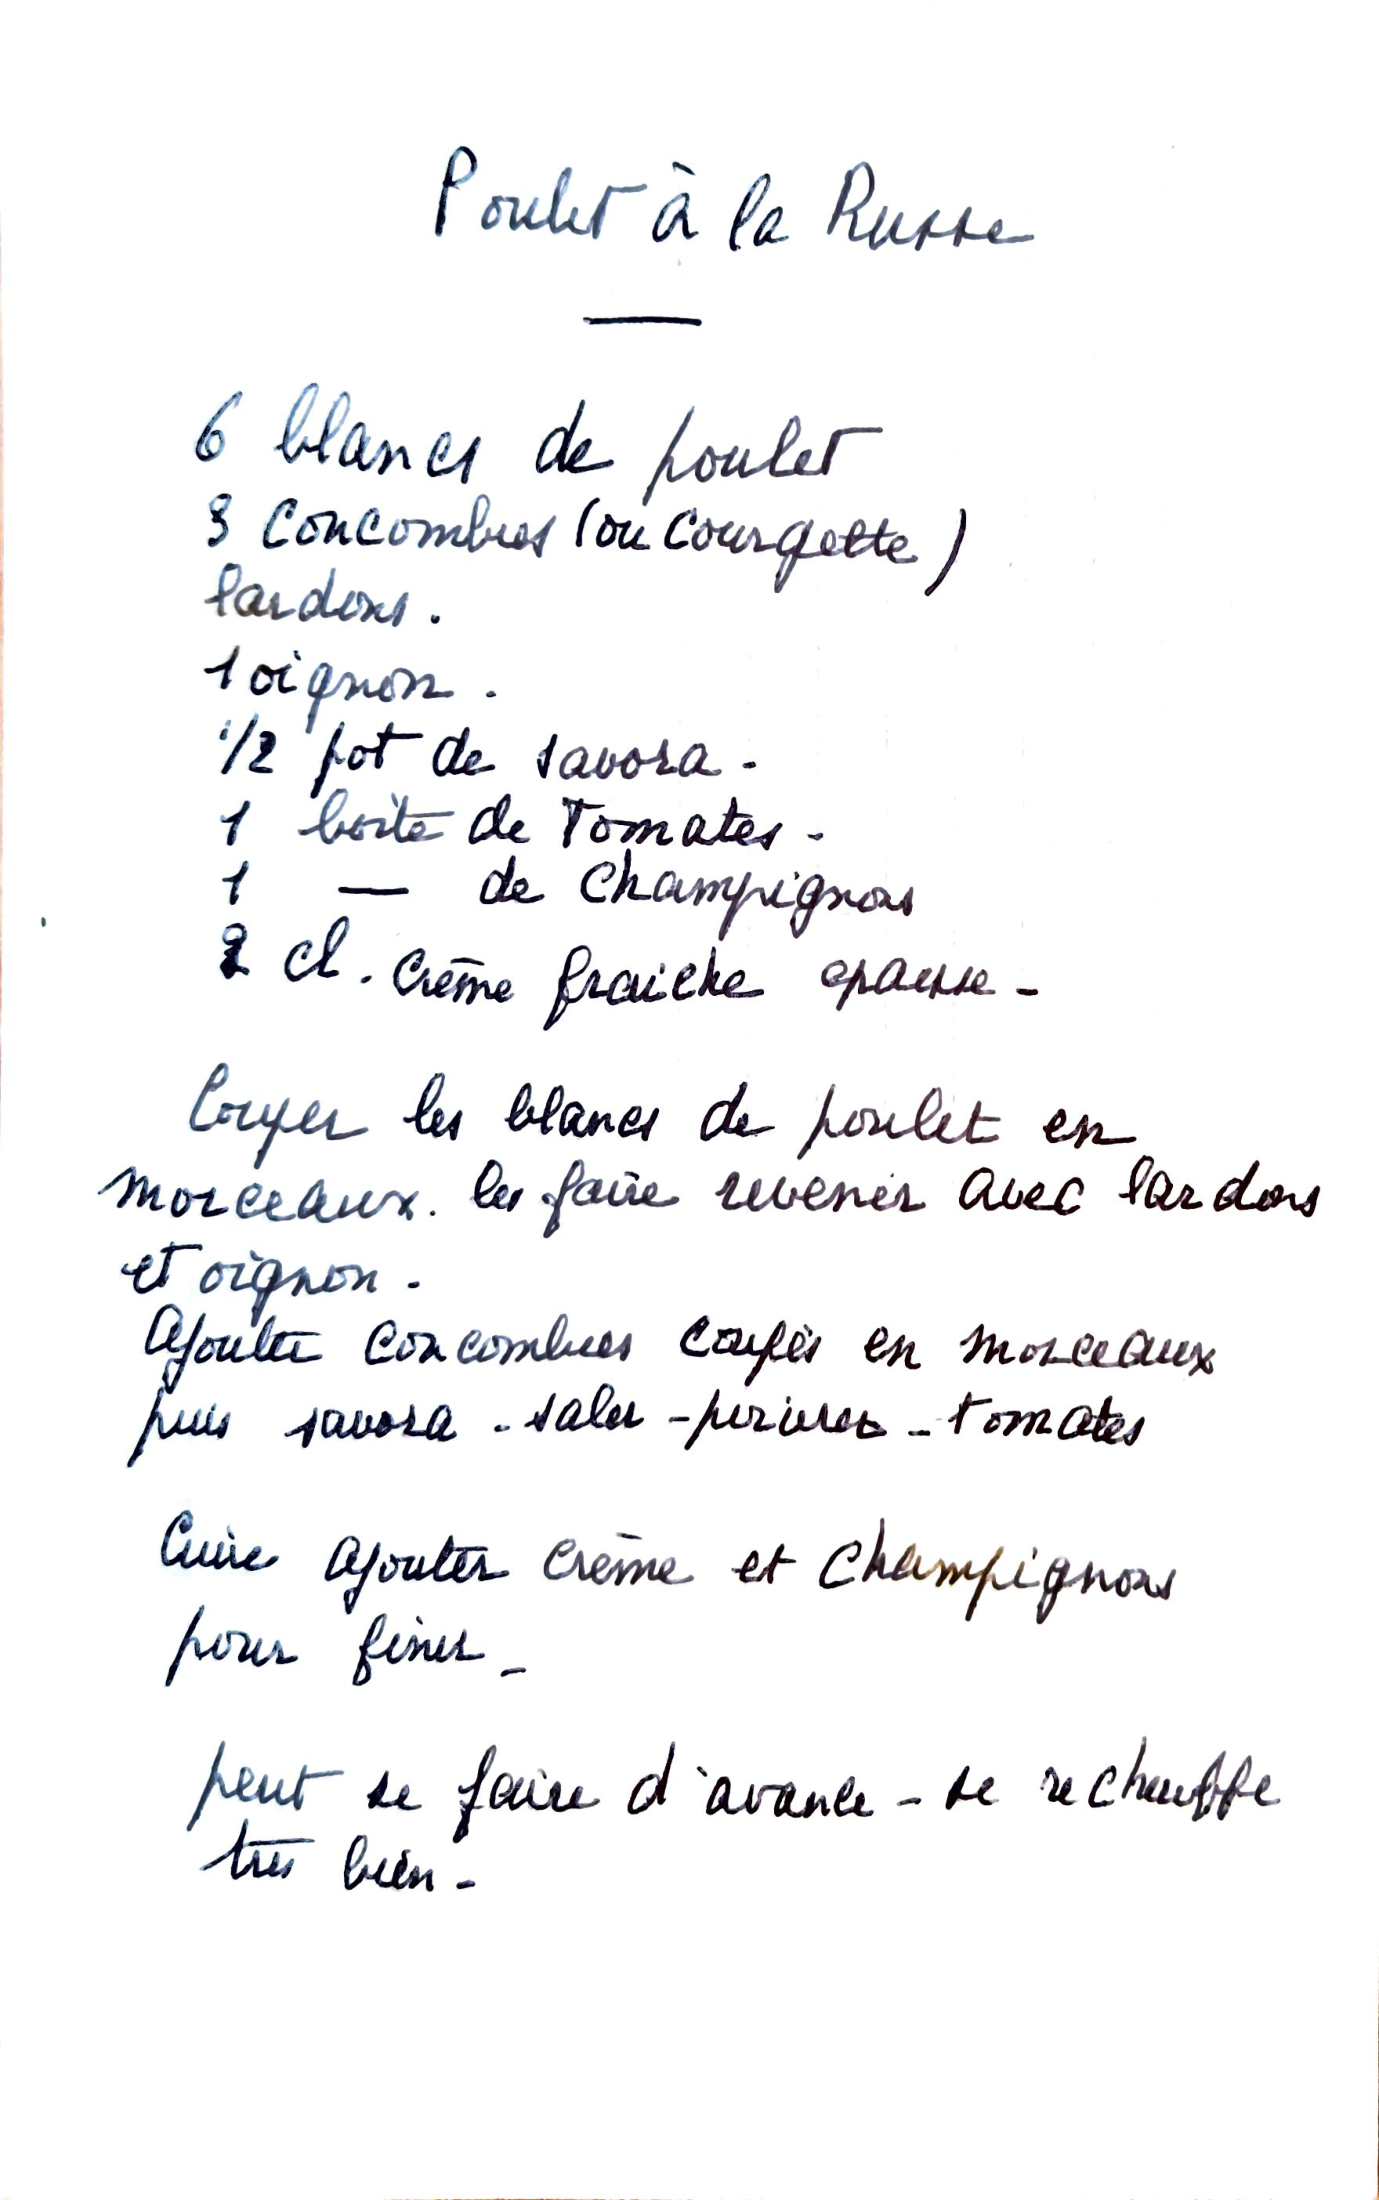 Poulet à la Russe
6 blancs de poulet
3 Concombres (ou Courgette)
lardons.
1 oignon.
1/2 pot de savora -
1 boîte de Tomates -
1 — de Champignons
2 cl. Crème fraiche epaisse -
Couper les blancs de poulet en
morceaux. les faire revenir avec lardons
et oignon.
Ajouter concombres coupés en morceaux
puis savora - saler - poivrer - tomates
Cuire ajouter crème et champignons
pour finir -
peut se faire d'avance - se rechauffe
très bien -